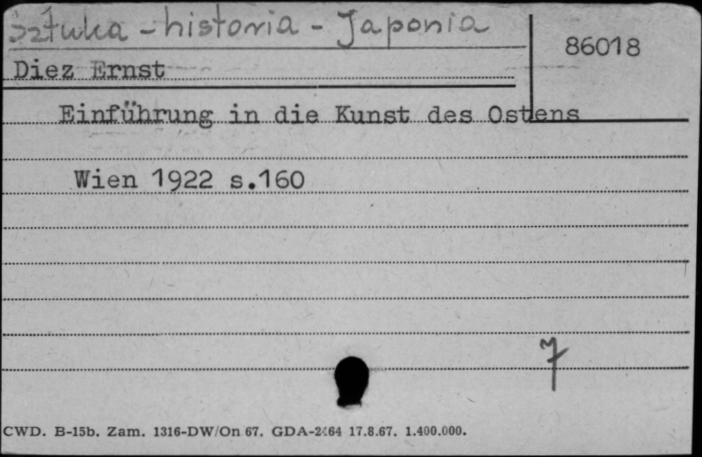 Sztuka - historia - Japonia
86018
Diez Ernst
Einführung in die Kunst des Ostens
Wien 1922 s.160
7
CWD. B-15b. Zam. 1316-DW/On 67. GDA-2464 17.8.67. 1.400.000.